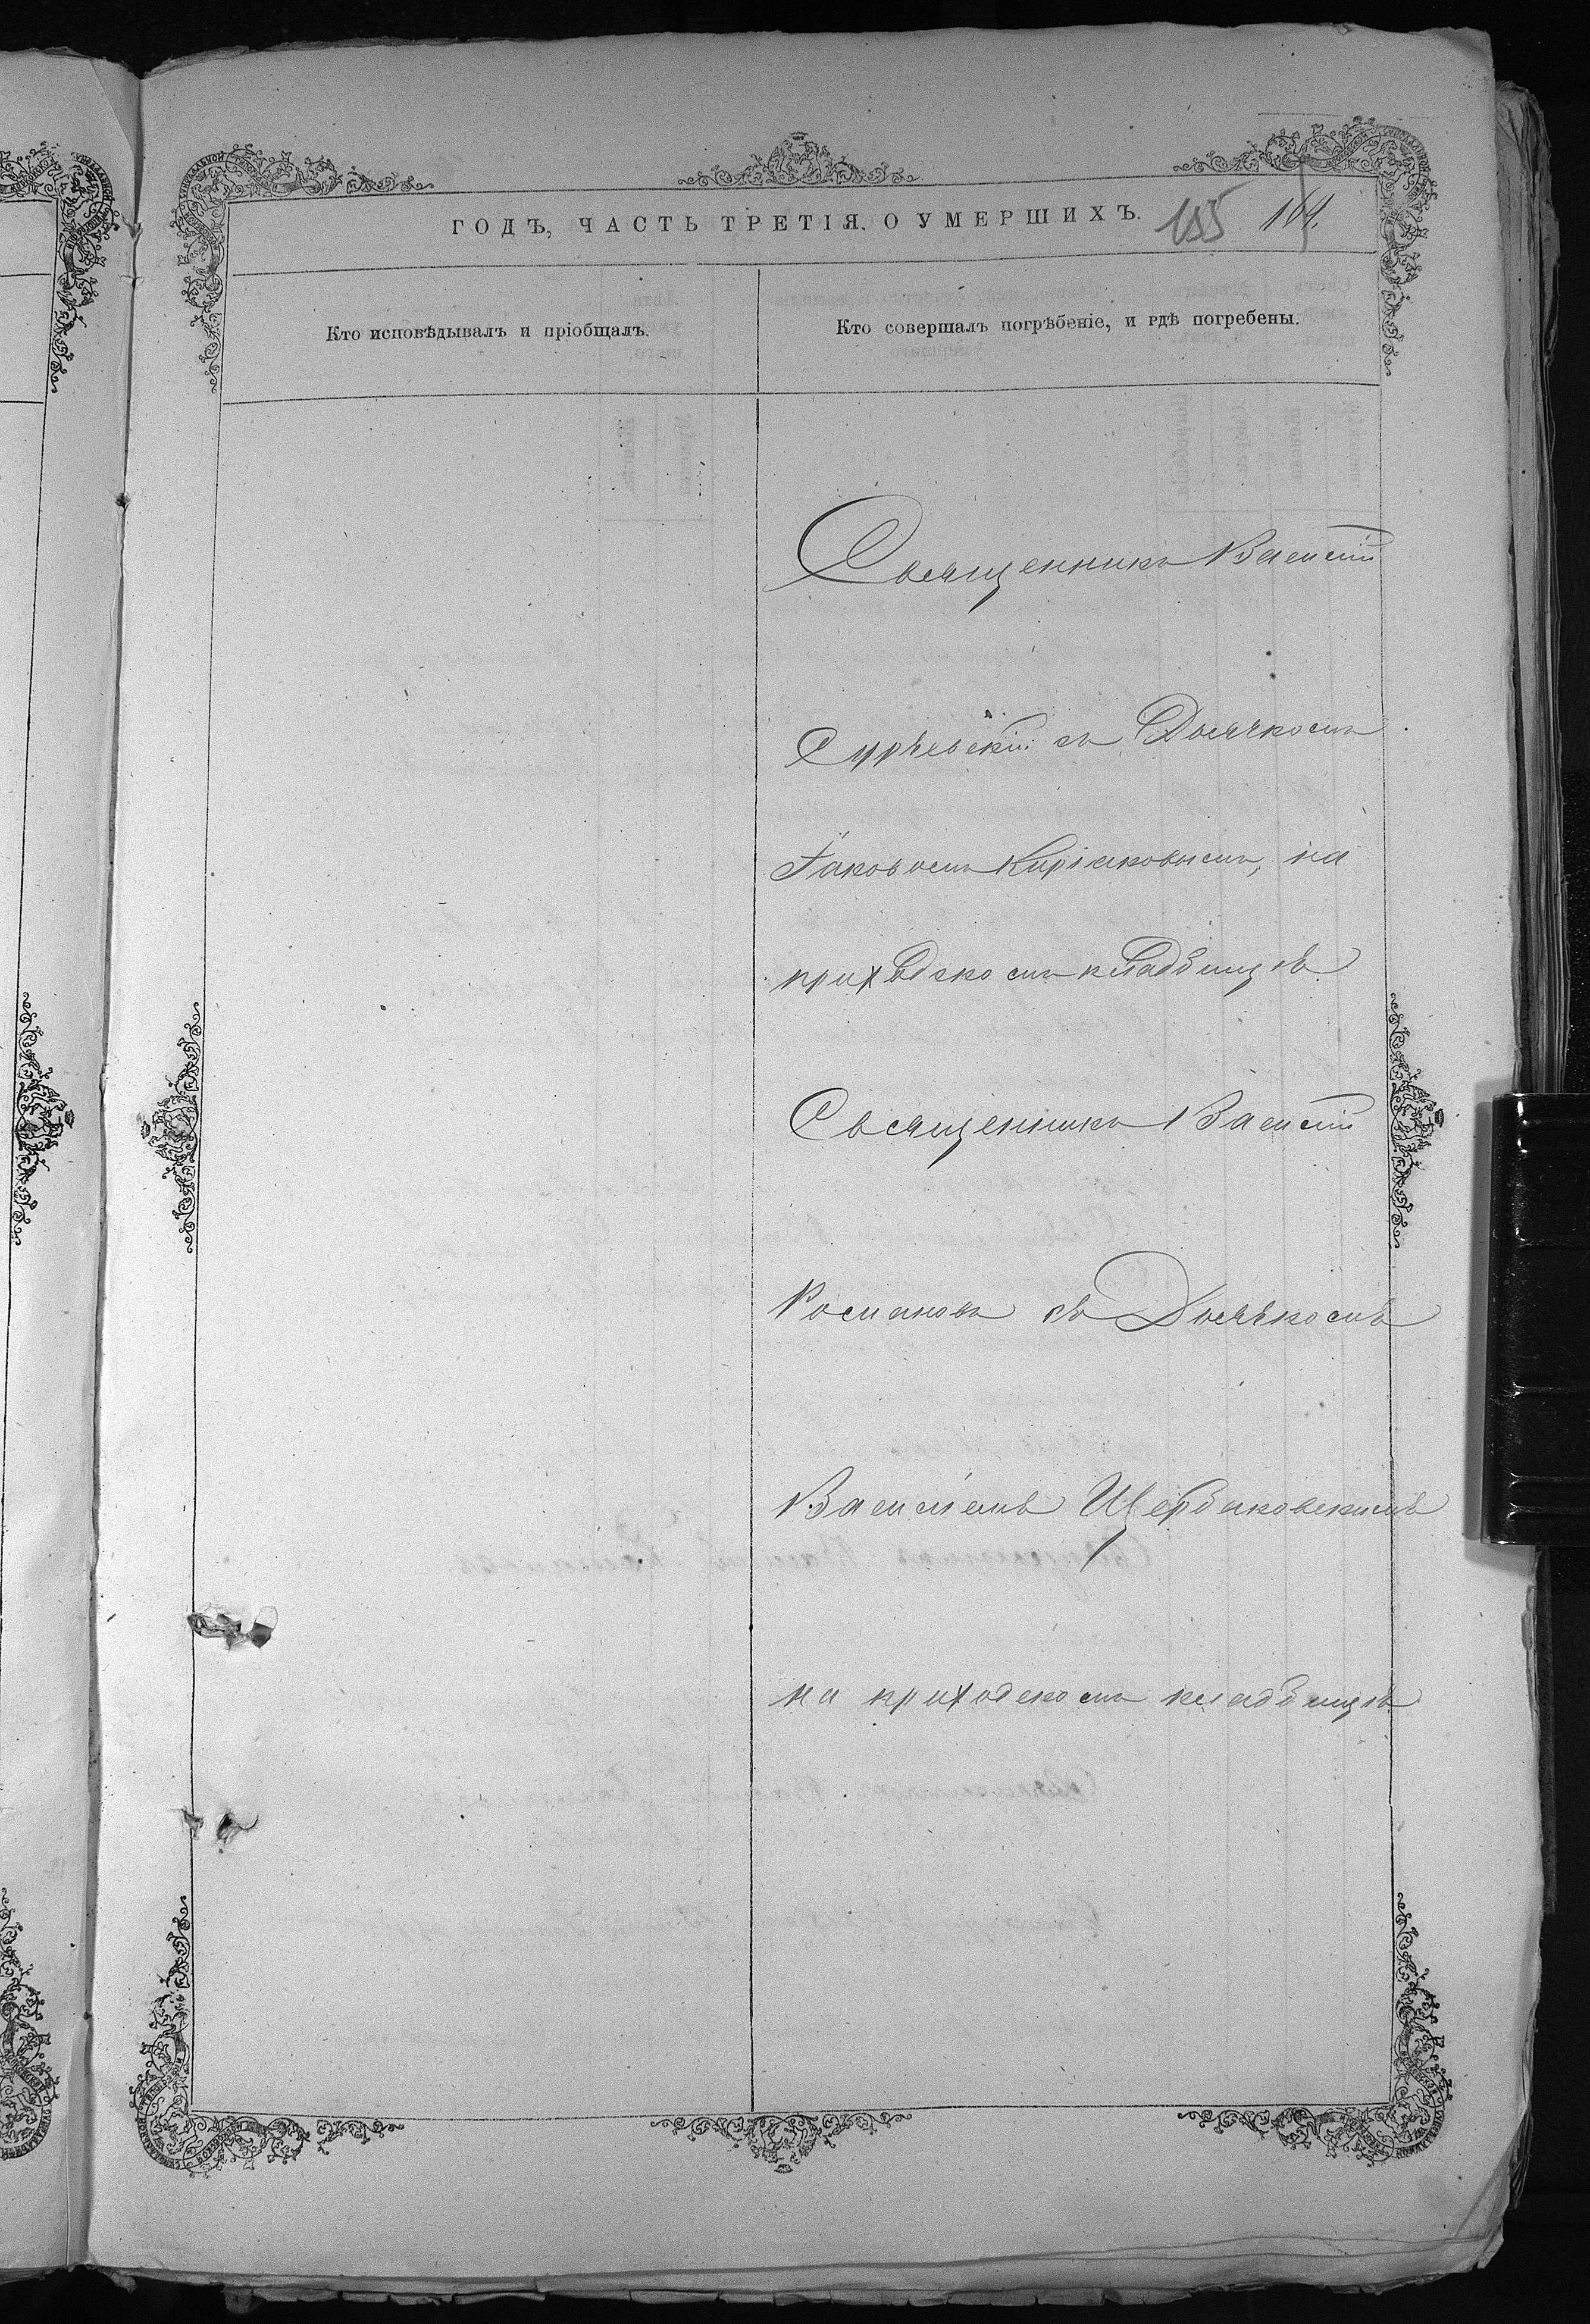 ГОДЪ, ЧАСТЬ ТРЕТІЯ. О УМЕРШИХЪ. 155 164.
Кто исповѣдывалъ и пріобщалъ.
Кто совершалъ погрѣбеніе, и гдѣ погребены.
Священникъ Василій
съ Дьячкомъ
Іаковомъ Киріаковымъ, на
приходскомъ кладбищѣ
Священникъ Василій
Романовъ съ Дьячкомъ
Василіемъ Щербаковскимъ
на приходскомъ кладбищѣ